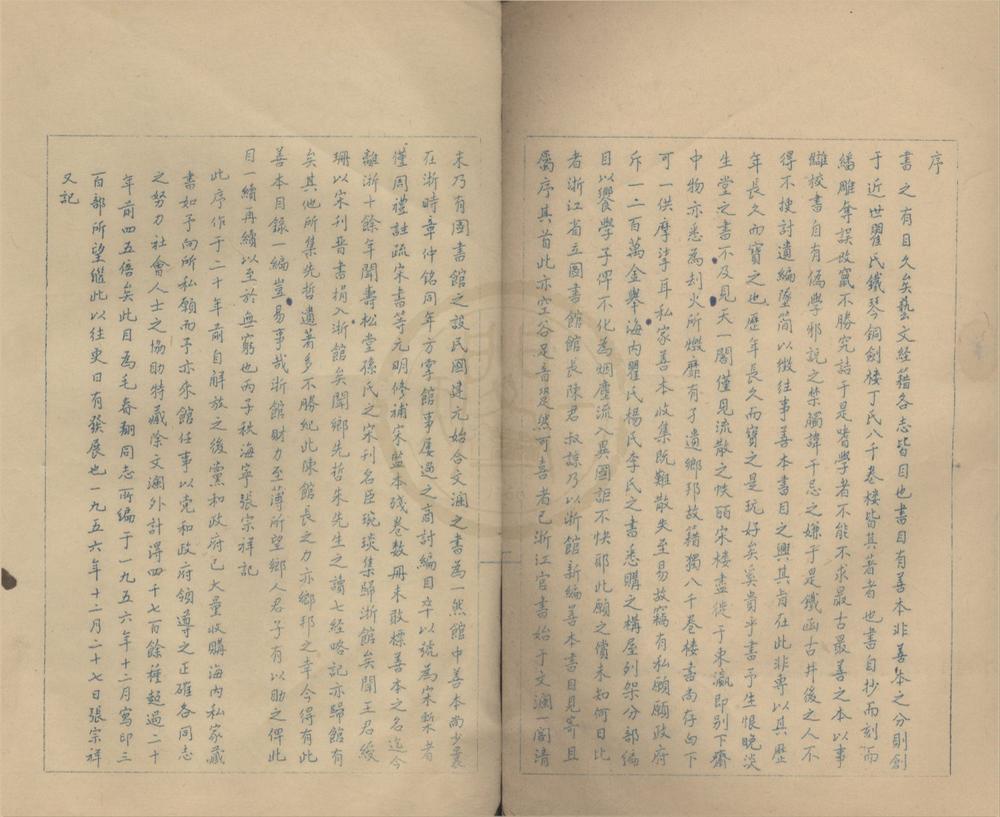 序
書之有目久矣藝文經籍各志皆目也書目有善本非善本之分則創
于近世瞿氏鐵琴銅劍樓丁氏八千卷樓皆其著者也書自抄而刻而
繙雕奪誤改竄不勝究詰于是嗜學者不能不求最古最善之本以事
讎校書自有偽學邪說之禁觸諱于忌之嫌于是鐵函古井後之人不
得不搜討遺編墜簡以徵往事善本書目之興其肯在此非專以其歷
年長久而寶之也歷年長久而寶之是玩好矣奚貴乎書予生恨晚淡
生堂之書不及見天一閣僅見流散之帙皕宋樓盡徙于東瀛即別下齋
中物亦悉為刦火所燬靡有孑遺鄉邦故籍獨八千卷樓書尚存白下
可一供摩挲耳私家善本收集既難散失至易故竊有私願願政府
斥一二百萬金舉海內瞿氏楊氏李氏之書悉購之構屋列架分部編
目以饗學子俾不化為烟塵流入異國詎不快耶此願之償未知何日比
者浙江省立圖書館館長陳君叔諒乃以浙館新編善本書目見寄且
屬序其首此亦空谷足音跫然可喜者已浙江官書始于文瀾一閣清
末乃有圖書館之設民國建元始合文瀾之書為一然館中善本尚少曩
在浙時章仲銘同年方掌館事屢過之商討編目卒以號為宋槧者
僅周禮註疏宋書等元明修補宋監本殘卷數冊未敢標善本之名迄今
離浙十餘年聞壽松堂孫氏之宋刊名臣琬琰集歸浙館矣聞王君綬
珊以宋刊晉書捐入浙館矣聞鄉先哲朱先生之讀七經略記亦歸館有
矣其他所集先哲遺著多不勝紀此陳館長之力亦鄉邦之幸今得有此
善本目錄一編豈易事哉浙館財力至薄所望鄉人君子有以助之俾此
目一續再續以至於無窮也丙子秋海寧張宗祥記
此序作于二十年前自解放之後黨和政府已大量收購海內私家藏
書如予向所私願而予亦來館任事以党和政府領導之正確各同志
之努力社會人士之協助特藏除文瀾外計得四千七百餘種超過二十
年前四五倍矣此目為毛春翔同志所編于一九五六年十二月寫印三
百部所望繼此以往東日有發展也一九五六年十二月二十七日張宗祥
又記